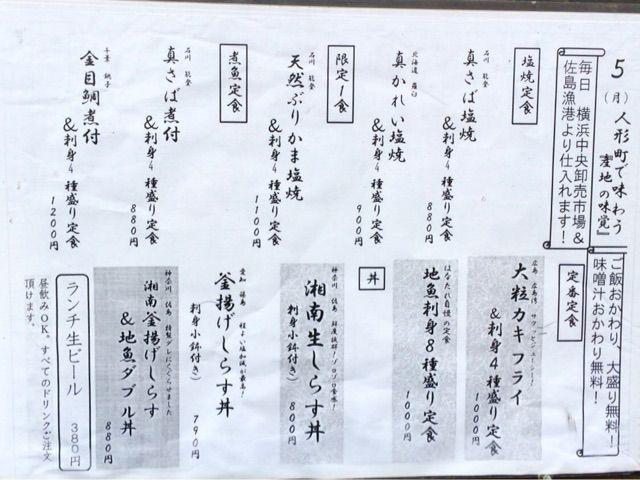 5(月)人形町で味わう
『産地の味覚』
毎日 横浜中央卸売市場&
佐島漁港より仕入れます!
ご飯おかわり、大盛り無料!
味噌汁おかわり無料!
塩焼定食
石川 能登
真さば塩焼
&刺身4種盛り定食
880円
北海道 羅臼
真かれい塩焼
&刺身4種盛り定食
900円
限定1食
石川 能登
天然ぶりかま塩焼
&刺身4種盛り定食
1100円
煮魚定食
石川 能登
真さば煮付
&刺身4種盛り定食
880円
千葉 銚子
金目鯛煮付
&刺身4種盛り定食
1200円
定番定食
広島 広島湾 サクッとジューシー!
大粒カキフライ
&刺身4種盛り定食
1000円
はなたれ自慢の定食
地魚刺身8種盛り定食
1000円
丼
神奈川 佐島 鮮度抜群!
湘南生しらす丼
刺身小鉢付き)
800円
愛知 篠島 程よい塩加減が最高!
釜揚げしらす丼
刺身小鉢付き)
790円
神奈川 佐島 特製ダレにくぐらせました
湘南釜揚げしらす
&地魚ダブル丼
880円
ランチ生ビール 380円
昼飲みOK。すべてのドリンクご注文
頂けます。